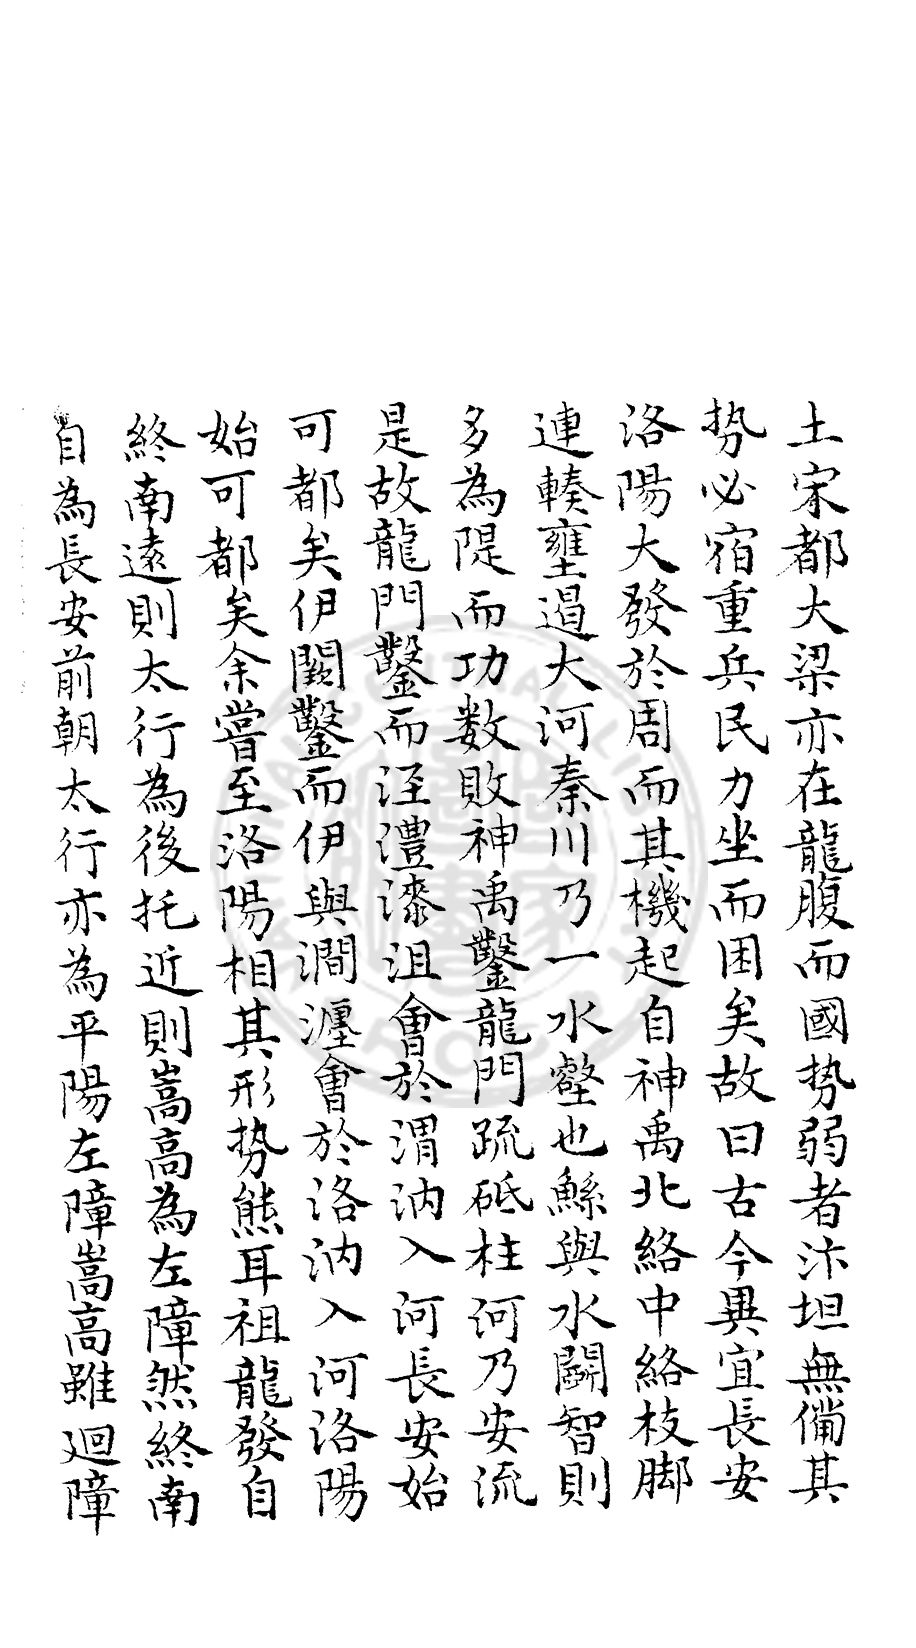 土宋都大梁亦在龍腹而國势弱者汴坦無備其
势必宿重兵民力坐而困矣故曰古今異宜長安
洛陽大發於周而其機起自神禹北絡中絡枝脚
連輳壅遏大河秦川乃一水壑也鯀與水鬭智則
多為隄而功数敗神禹鑿龍門疏砥柱河乃安流
是故龍門鑿而涇澧漆沮會於渭汭入河長安始
可都矣伊闕鑿而伊與澗瀍會於洛汭入河洛陽
始可都矣余嘗至洛陽相其形势熊耳祖龍發自
終南遠則太行為後托近則嵩高為左障然終南
自為長安前朝太行亦為平陽左障嵩高雖迴障